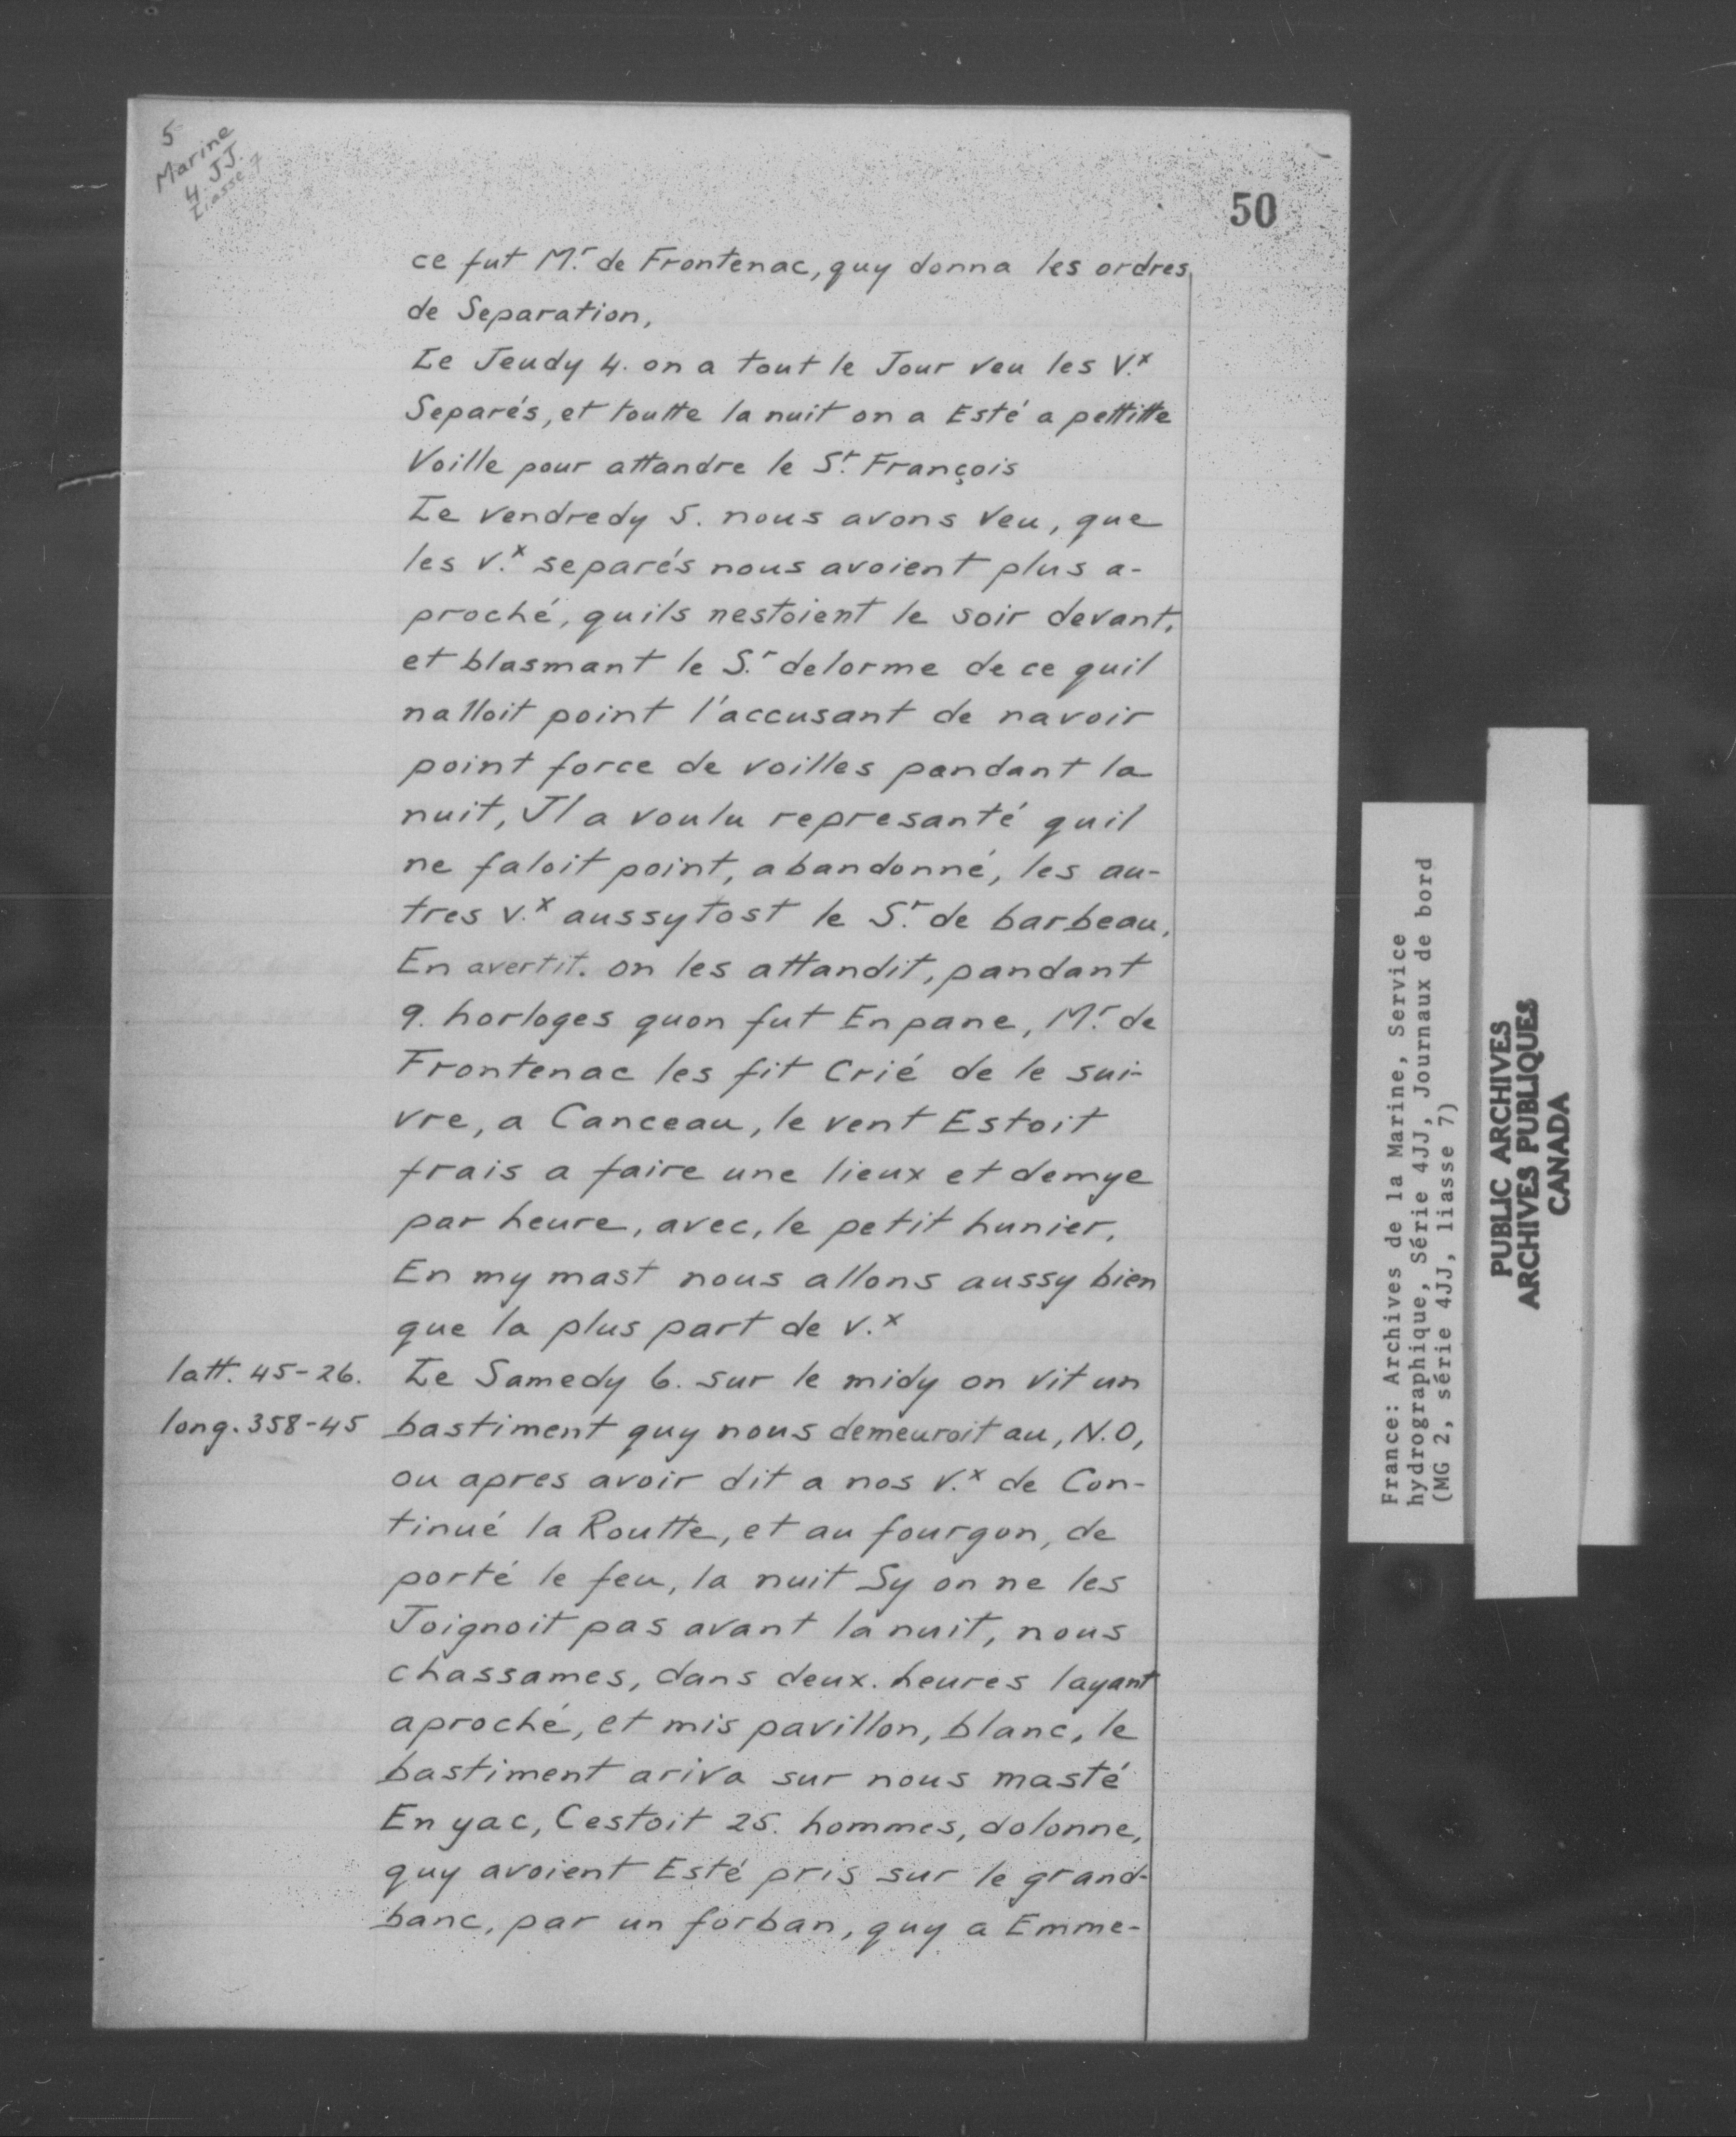 5
Marine
4. JJ.
Liasse 7
50
ce fut M.r de Frontenac, quy donna les ordres
de Separation,
Le Jeudy 4. on a tout le Jour veu les V.x
Separés, et toutte la nuit on a Esté a pettitte
Voille pour attandre le St. François
Le vendredy 5. nous avons veu, que
les v.x separés nous avoient plus a-
proché, quils nestoient le soir devant,
et blasmant le S.r delorme de ce quil
nalloit point l'accusant de navoir
point force de voilles pandant la
nuit, Jl a voulu represanté quil
ne faloit point, abandonné, les au-
tres v.x aussytost le S.r de barbeau,
En avertit. on les attandit, pandant
9. horloges quon fut En pane, M.r de
Frontenac les fit Crié de le sui-
vre, a Canceau, le vent Estoit
frais a faire une lieux et demye
par heure, avec, le petit hunier,
En my mast nous allons aussy bien
que la plus part de v.x
latt. 45-26. Le Samedy 6. sur le midy on vit un
long. 358-45 bastiment quy nous demeuroit au, N.O,
ou apres avoir dit a nos v.x de Con-
tinué la Routte, et au fourgon, de
porté le feu, la nuit Sy on ne les
Joignoit pas avant la nuit, nous
chassames, dans deux. heures layant
aproché, et mis pavillon, blanc, le
bastiment ariva sur nous masté
En yac, Cestoit 25. hommes, dolonne,
quy avoient Esté pris sur le grand-
banc, par un forban, quy a Emme-
France: Archives de la Marine, Service
hydrographique, Série 4JJ, Journaux de bord
(MG 2, série 4JJ, liasse 7)
PUBLIC ARCHIVES
ARCHIVES PUBLIQUES
CANADA